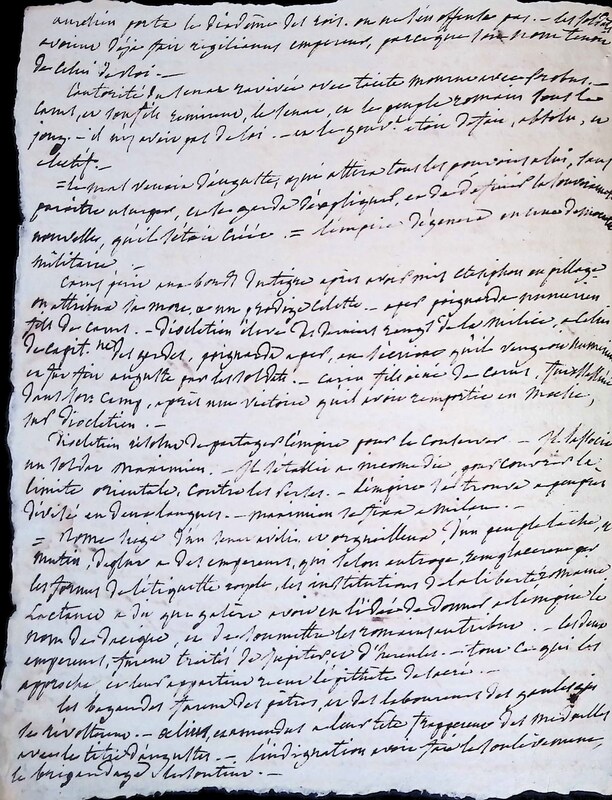 aurélien porta le diadème des rois. on ne s'en offensa pas. — les soldats
avaient déjà fait régilianus empereur, parceque son nom tenait
de celui de roi. —
L'autorité du senat ravivée avec tacite mourut avec Probus. —
carus, et son fils réunirent, le senat, et le peuple romain sous le
joug. — il n'y avoit pas de loi. — et le gouvt. etoit de fait, absolu, et
électif. —
= le mal venoit d'auguste, qui attira tous les pouvoirs a lui, sans
paroitre usurper, et se garda d'expliquer, et de définir la souveraineté
nouvelle, qu'il s'etoit créée. = l'empire dégénéra en une démocratie
militaire
Carus périt aux bords du tigre après avoir mis ctesiphon au pillage
on attribua sa mort, a un prodige céleste. — aper poignarda numerien
fils de carus. — diocletien élevé des derniers rangs de la milice, a celui
de capit.ne des gardes, poignarda aper, en s'écriant qu'il vengeoit numerien
et fut fait auguste par les soldats. — carin fils ainé de carus, fut assassiné
dans son camp, après une victoire qu'il avoit remportée en Moesie,
sur diocletien. —
Diocletien résolut de partager l'empire pour le conserver — il s'associe
un soldat maximien. — il s'etablit a nicomedie, pour couvrir la
limite orientale, contre les Perses. — l'empire se trouva a peu près
divisé en deux langues. — maximien se fixa a milan. —
= Rome siege d'un senat avili, et orgueilleux, d'un peuple lâche, et
mutin, déplut a des empereurs, qui selon
les formes de l'étiquette royale, les institutions de la liberté romaine
Lactance a dit que galère avoit eu l'idée de donner a l'empire le
nom de dacique, et de soumettre les romains au tribut. — les deux
empereurs, furent traités de Jupiter et d'hercule. — tout ce qui les
approche, et leur appartient reçut l'épithète de sacré. —
les bagaudes furent des pâtres, et des laboureurs des gaules qui
se révolterent. — aelius, et amandus a leur tête frapperent des medailles
avec le titre d'augustes. — l'indignation avoit fait le soulevement,
le brigandage le soutint. —